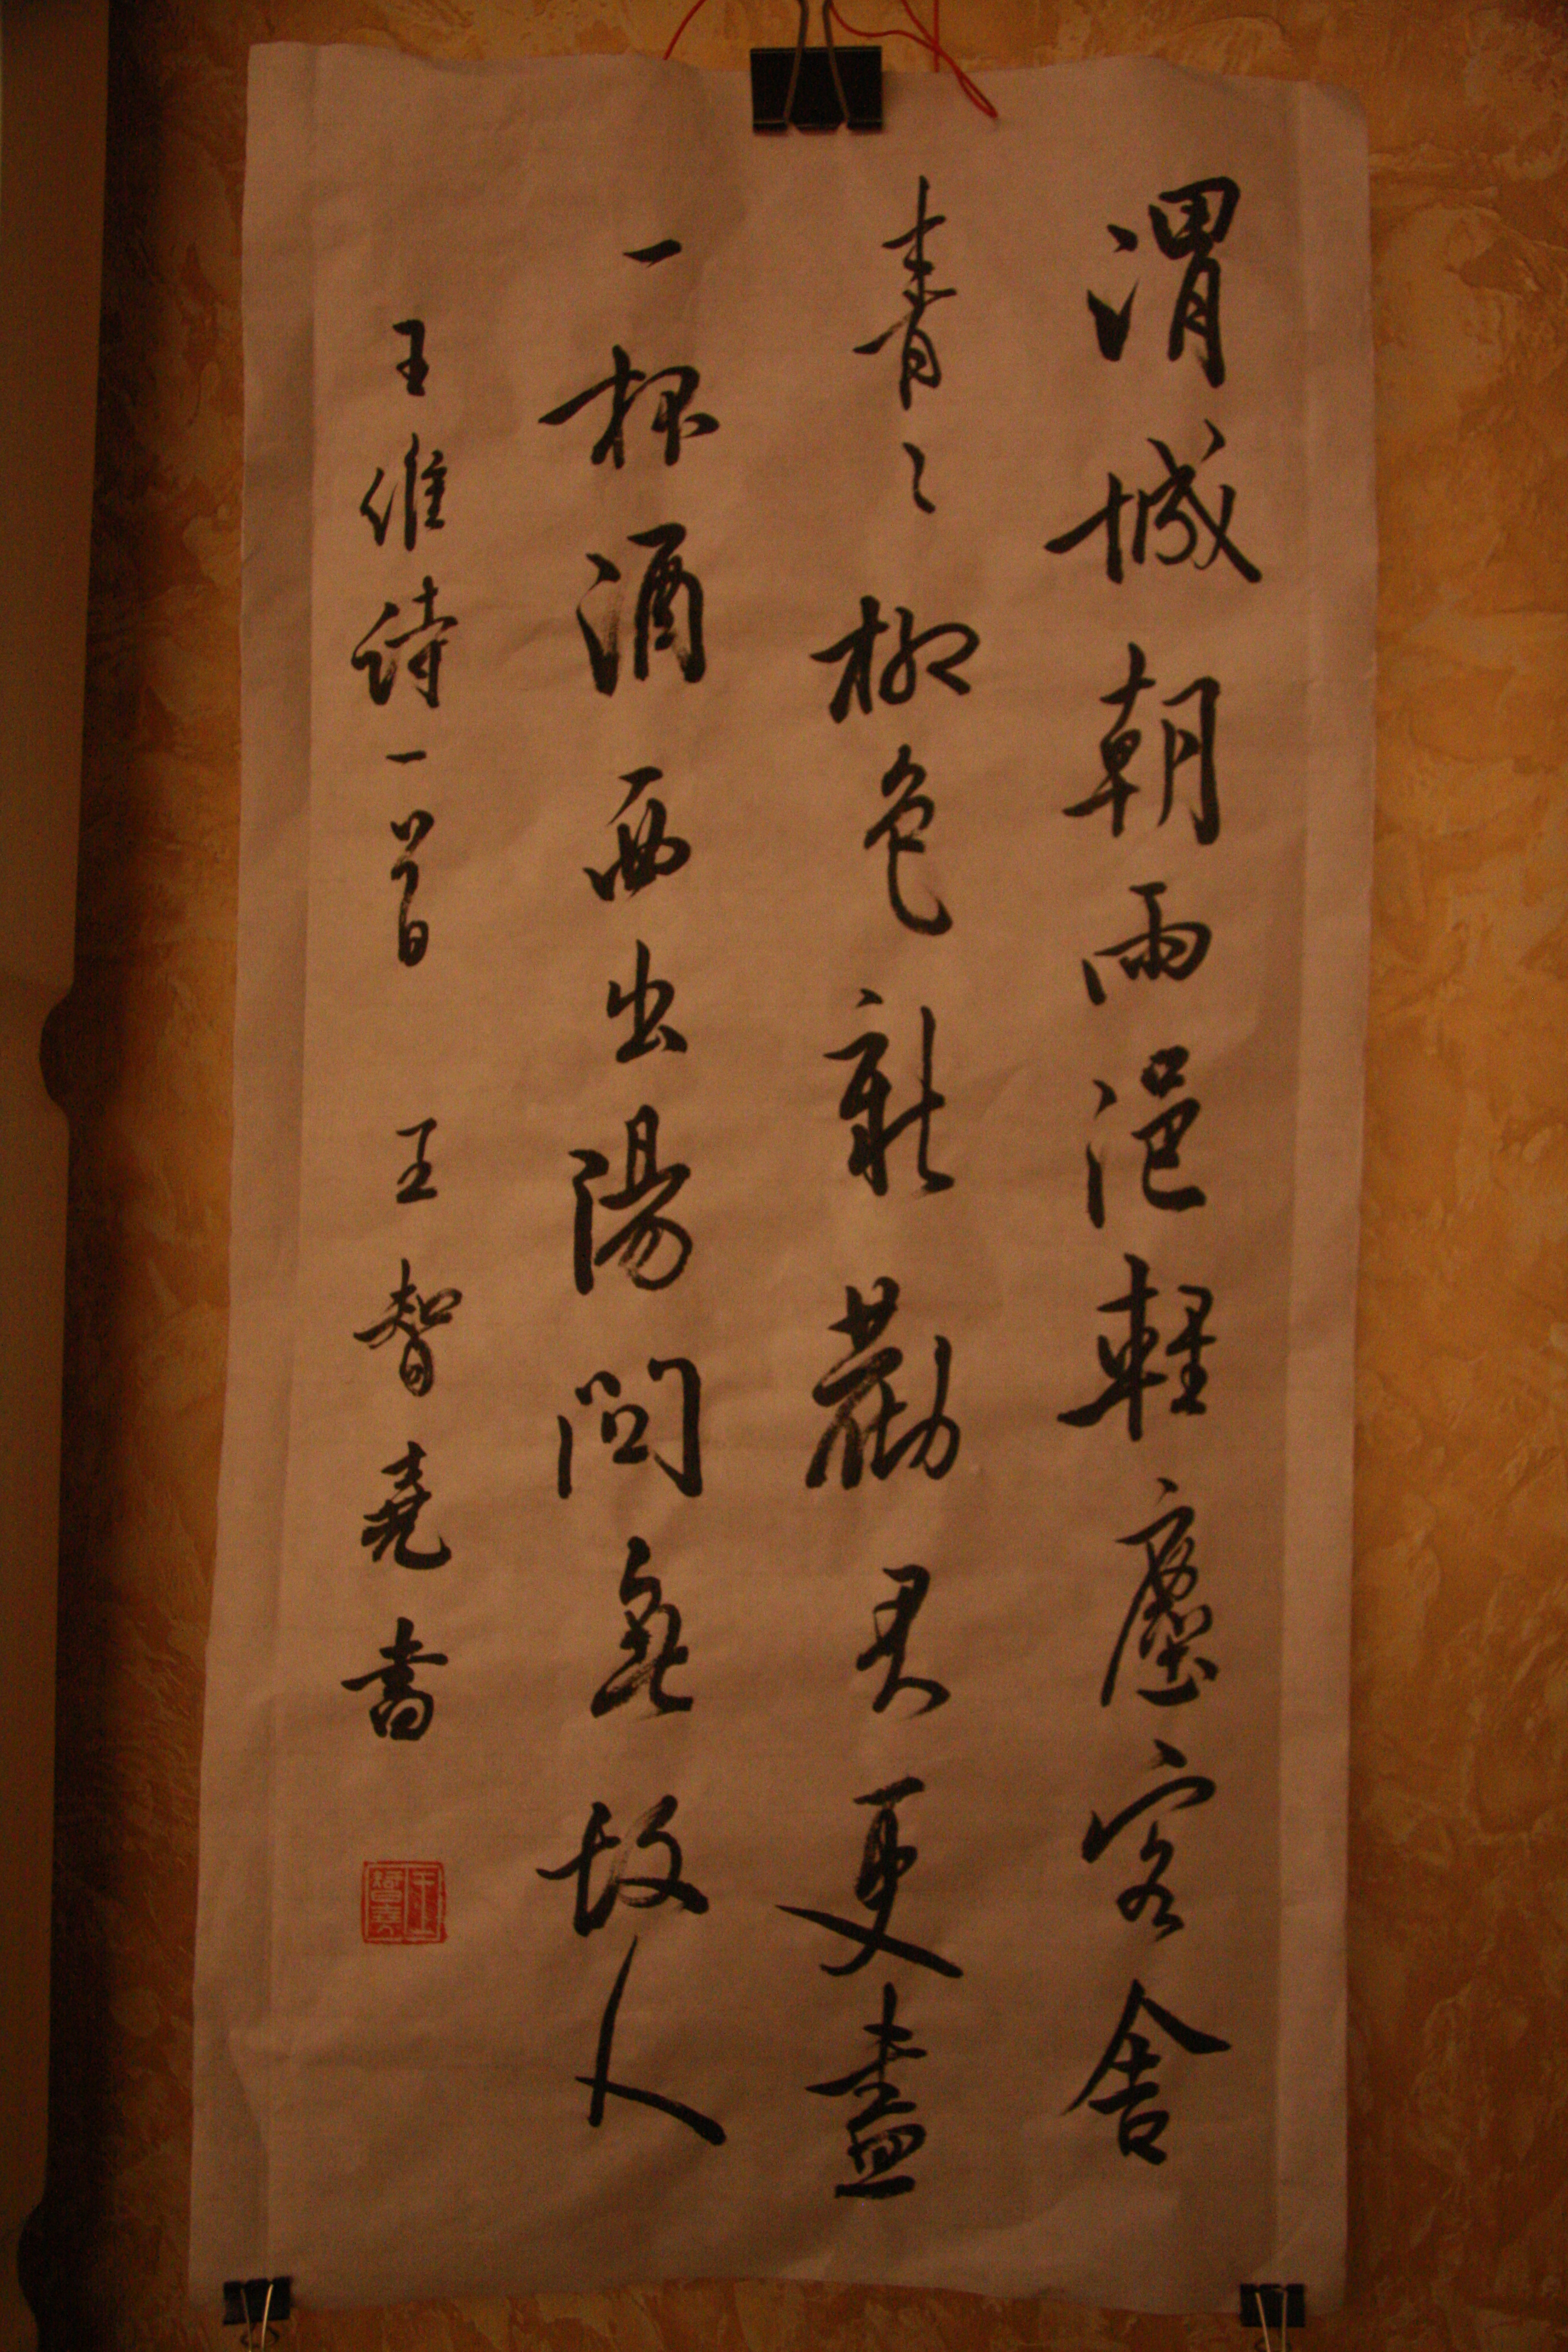 渭城朝雨浥輕塵客舍
青々柳色新勸君更盡
一杯酒西出陽關無故人
王維詩一首 王智堯書
王智堯